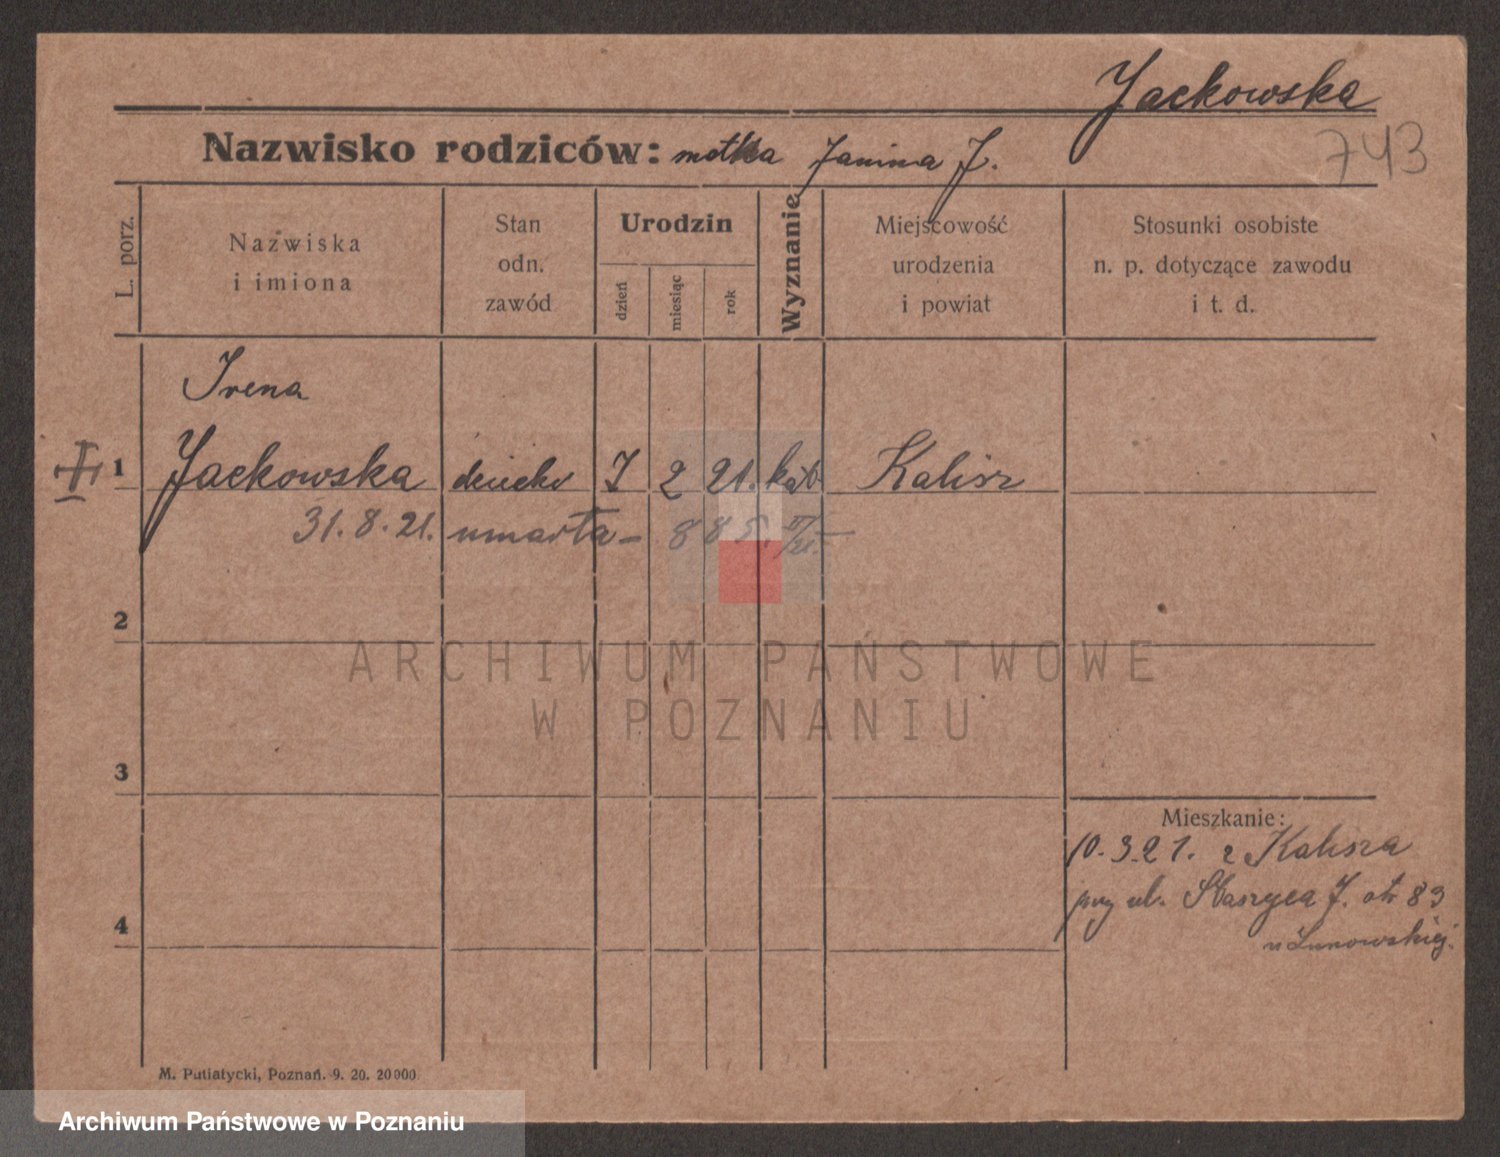 Jackowska
743
Nazwisko rodziców: matka Janina J.
L. porz.
Nazwiska
i imiona
Stan
odn.
zawód
Urodzin
dzień
miesiąc
rok
Wyznanie
Miejscowość
urodzenia
i powiat
Stosunki osobiste
n. p. dotyczące zawodu
i t. d.
Irena
1 Jackowska dziecko 7 2 21. kat. Kalisz
31.8.21. umarła – 885.
2
3
4
Mieszkanie:
10.3.21. z Kalisza
przy ul. Staszyca 7. otr 83
u Lunowskiej.
M. Putiatycki, Poznań. 9. 20. 20000.
ARCHIWUM PAŃSTWOWE
W POZNANIU
Archiwum Państwowe w Poznaniu